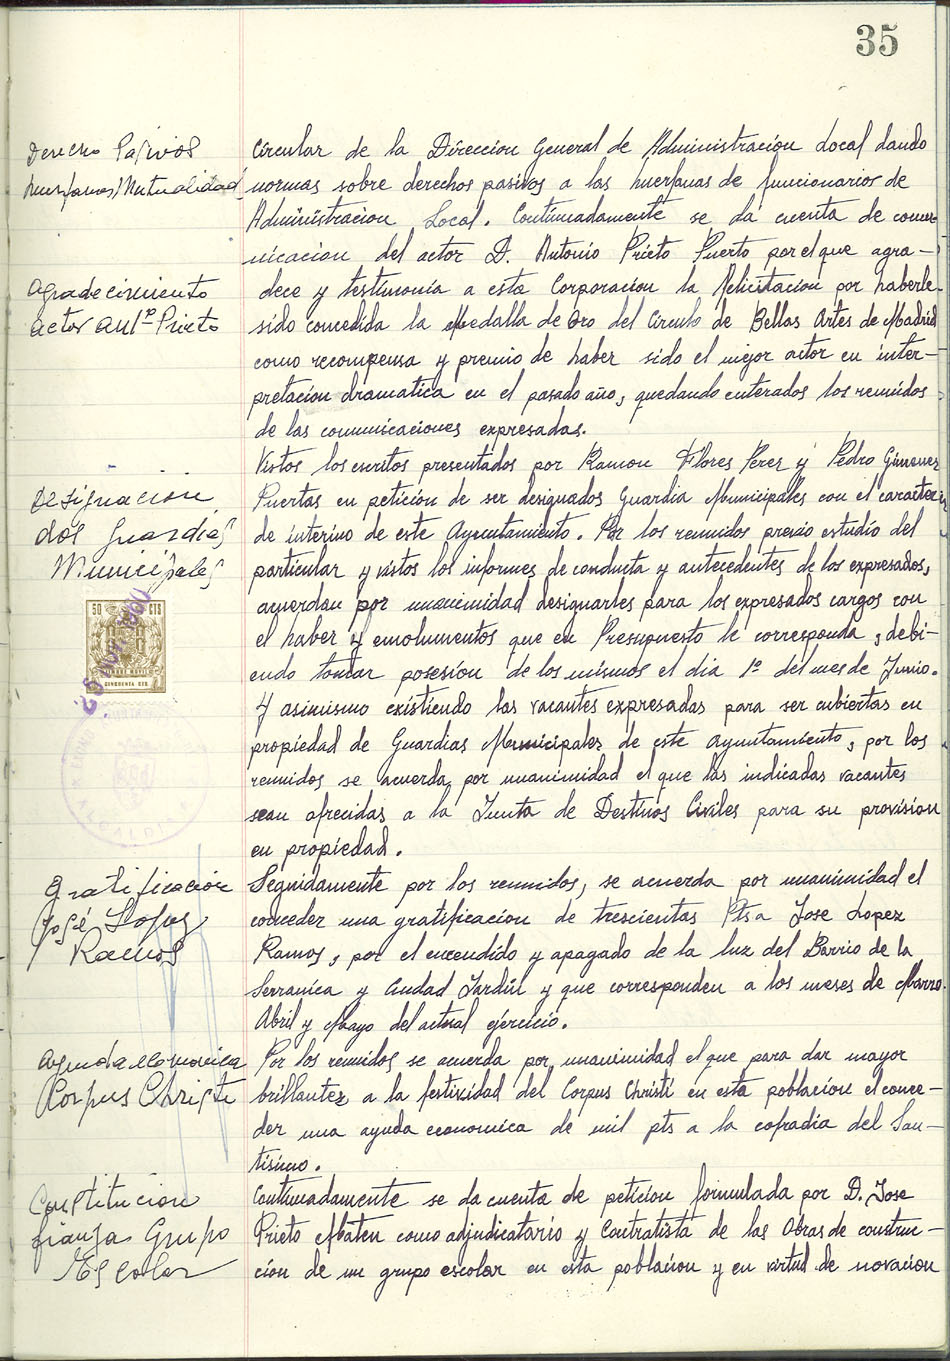 35
Derecho Pasivos
huerfanos Mutualidad
Circular de la Direccion General de Administracion Local dando
normas sobre derechos pasivos a las huerfanas de funcionarios de
Administracion Local. Continuadamente se da cuenta de comu-
nicacion del actor D. Antonio Prieto Puerto por el que agra-
Agradecimiento
actor Antº Prieto
dece y testimonia a esta Corporacion la felicitacion por haberle
sido concedida la Medalla de Oro del Circulo de Bellas Artes de Madrid
como recompensa y premio de haber sido el mejor actor en inter-
pretacion dramatica en el pasado año, quedando enterados los reunidos
de las comunicaciones expresadas.
Designacion
dos Guardias
Municipales
Vistos los escritos presentados por Ramon Flores Perez y Pedro Gimenez
Puertas en peticion de ser designados Guardia Municipales con el caracter
de interino de este Ayuntamiento. Por los reunidos previo estudio del
particular y vistos los informes de conducta y antecedentes de los expresados,
acuerdan por unanimidad designarles para los expresados cargos con
el haber y emolumentos que en Presupuesto le corresponda, debi-
endo tomar posesion de los mismos el dia 1º del mes de Junio.
Y asimismo existiendo las vacantes expresadas para ser cubiertas en
propiedad de Guardias Municipales de este Ayuntamiento, por los
reunidos se acuerda por unanimidad el que las indicadas vacantes
sean ofrecidas a la Junta de Destinos Civiles para su provision
en propiedad.
50 CTS
CINCUENTA CTS
ALCALDI
Gratificacion
José Lopez
Ramos
Seguidamente por los reunidos, se acuerda por unanimidad el
conceder una gratificacion de trescientas Pts a Jose Lopez
Ramos, por el encendido y apagado de la luz del Barrio de la
Serranica y Ciudad Jardín y que corresponden a los meses de Marzo
Abril y Mayo del actual ejercicio.
Ayuda economica
Corpus Christi
Por los reunidos se acuerda por unanimidad el que para dar mayor
brillantez a la festividad del Corpus Christi en esta poblacion el conce-
der una ayuda economica de mil pts a la cofradia del San-
tisimo.
Constitucion
fianza Grupo
Escolar
Continuadamente se da cuenta de peticion formulada por D. Jose
Prieto Maten como adjudicatario y Contratista de las Obras de construc-
cion de un grupo escolar en esta poblacion y en virtud de novacion